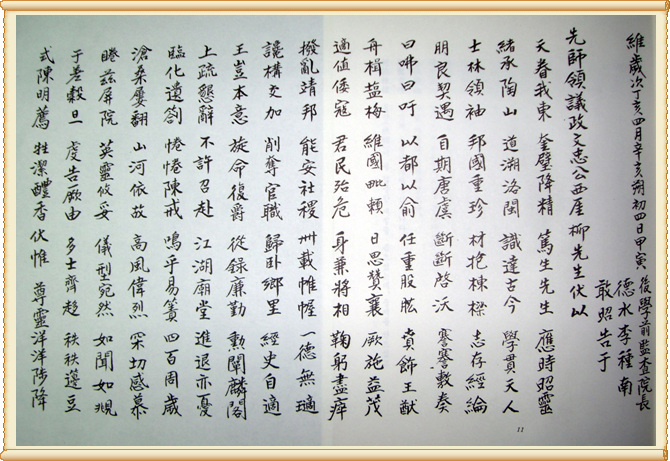 維歲次丁亥四月辛亥朔初四日甲寅 後學前監査院長
德水李種南
敢昭告于
先師領議政文忠公西厓柳先生伏以
天眷我東 奎璧降精 篤生先生 應時昭靈
緖承陶山 道溯洛閩 識達古今 學貫天人
士林領袖 邦國重珍 材挹棟樑 志存經綸
朋良契遇 自期唐虞 斷斷啓沃 謇謇敷奏
曰咈曰吁 以都以兪 任重股肱 賁飾王猷
舟楫塩梅 維國毗賴 日思贊襄 厥施益茂
適値倭寇 君民殆危 身兼將相 鞠躬盡瘁
撥亂靖邦 能安社稷 卅載帷幄 一德無
讒構交加 削奪官職 歸卧鄕里 經史自適
王豈本意 旋命復爵 從錄廉勤 勳闡麟閣
上疏懇辭 不許召赴 江湖廟堂 進退亦憂
臨化遺箚 惓惓陳戒 嗚乎易簀 四百周歲
滄桑屢翻 山河依故 高風偉烈 切感慕
睠玆屛院 英靈攸妥 儀型宛然 如聞如覩
于差穀旦 虔告厥由 多士齊趍 秩秩籩豆
式陳明薦 牲潔醴香 伏惟 尊靈洋洋陟降
11